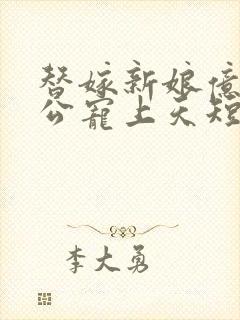 替嫁新娘億
公寵上天短
李大勇